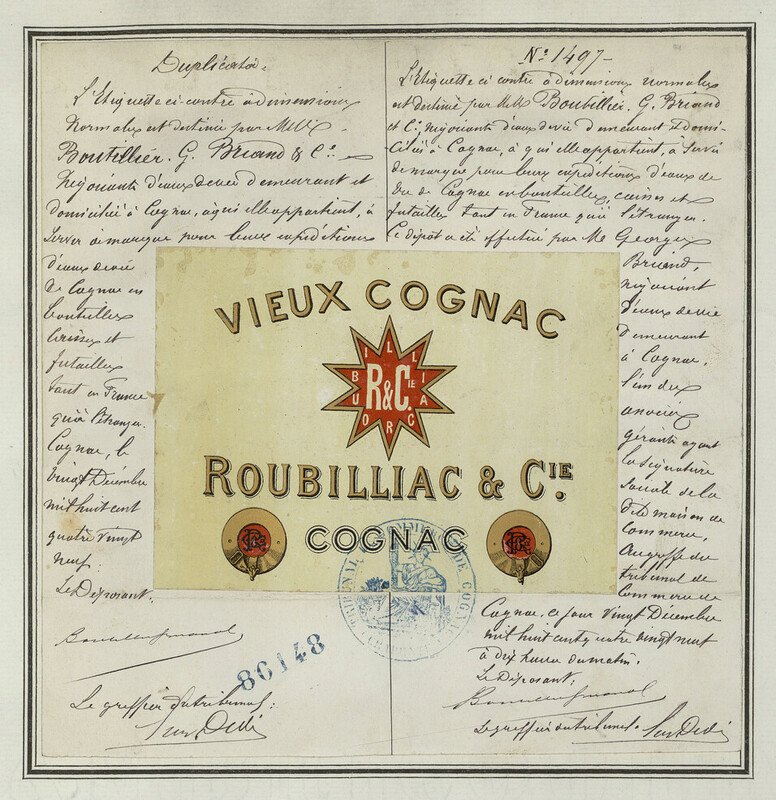 Duplicata.
L'Etiquette ci contre à dimensions
normales est destinée par MM.
Boutillier. G. Briand & Cie.
Négociants d'eaux de vie demeurant et
domiciliés à Cognac, à qui elle appartient, à
servir de marque pour leurs expéditions
d'eaux de vie
de Cognac en
bouteilles
caisses et
futailles
tant en France
qu'à l'étranger.
Cognac, le
vingt Décembre
mil huit cent
quatre vingt
neuf.
Le Déposant.
Le greffier du tribunal:
86148
No. 1497
L'Etiquette ci contre à dimensions normales
est destinée par MM. Boutillier. G. Briand
et Cie. négociants d'eaux de vie demeurant et domi-
ciliés à Cognac, à qui elle appartient, à servir
de marque pour leurs expéditions d'eaux de
vie de Cognac en bouteilles, caisses et
futailles tant en France qu'à l'étranger.
Ce dépôt a été effectué par Mr. Georges
Briand,
négociant
d'eaux de vie
demeurant
à Cognac,
l'un des
associés
gérants ayant
la signature
sociale de la
dite maison de
Commerce,
Au greffe du
tribunal de
Commerce de
Cognac, ce jour vingt Décembre
mil huit cent quatre vingt neuf
à dix heures du matin.
Le Déposant:
Le greffier du tribunal.
VIEUX COGNAC
ROUBILLIAC
R&CIE
ROUBILLIAC & CIE.
COGNAC
TRIBUNAL DE COMMERCE DE COGNAC